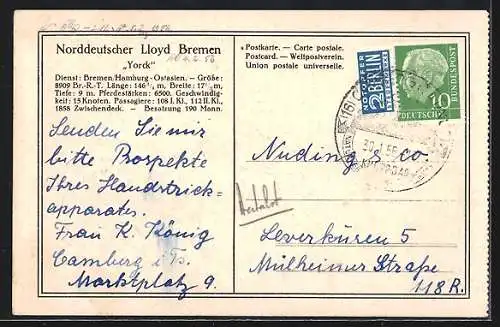 Norddeutscher Lloyd Bremen
„Yorck"
Dienst: Bremen/Hamburg - Ostasien. – Größe:
8909 Br.-R.-T. Länge: 146¹/₂ m, Breite: 17¹/₂ m,
Tiefe: 9 m. Pferdestärken: 6500. Geschwindig-
keit: 15 Knoten. Passagiere: 108 I. Kl., 112 II. Kl.,
1858 Zwischendeck. – Besatzung 190 Mann.
Senden Sie mir
bitte Prospekte
Ihres Handstrick-
apparates.
Frau K. König
Camberg i. Ts.
Marktplatz 9.
Postkarte. — Carte postale.
Postcard. — Weltpostverein.
Union postale universelle.
NOTOPFER
2 BERLIN
STEUERMARKE
10
DEUTSCHE
BUNDESPOST
(16)
Nuding & Co.
Leverküsen 5
Mülheimer Straße
118 R.